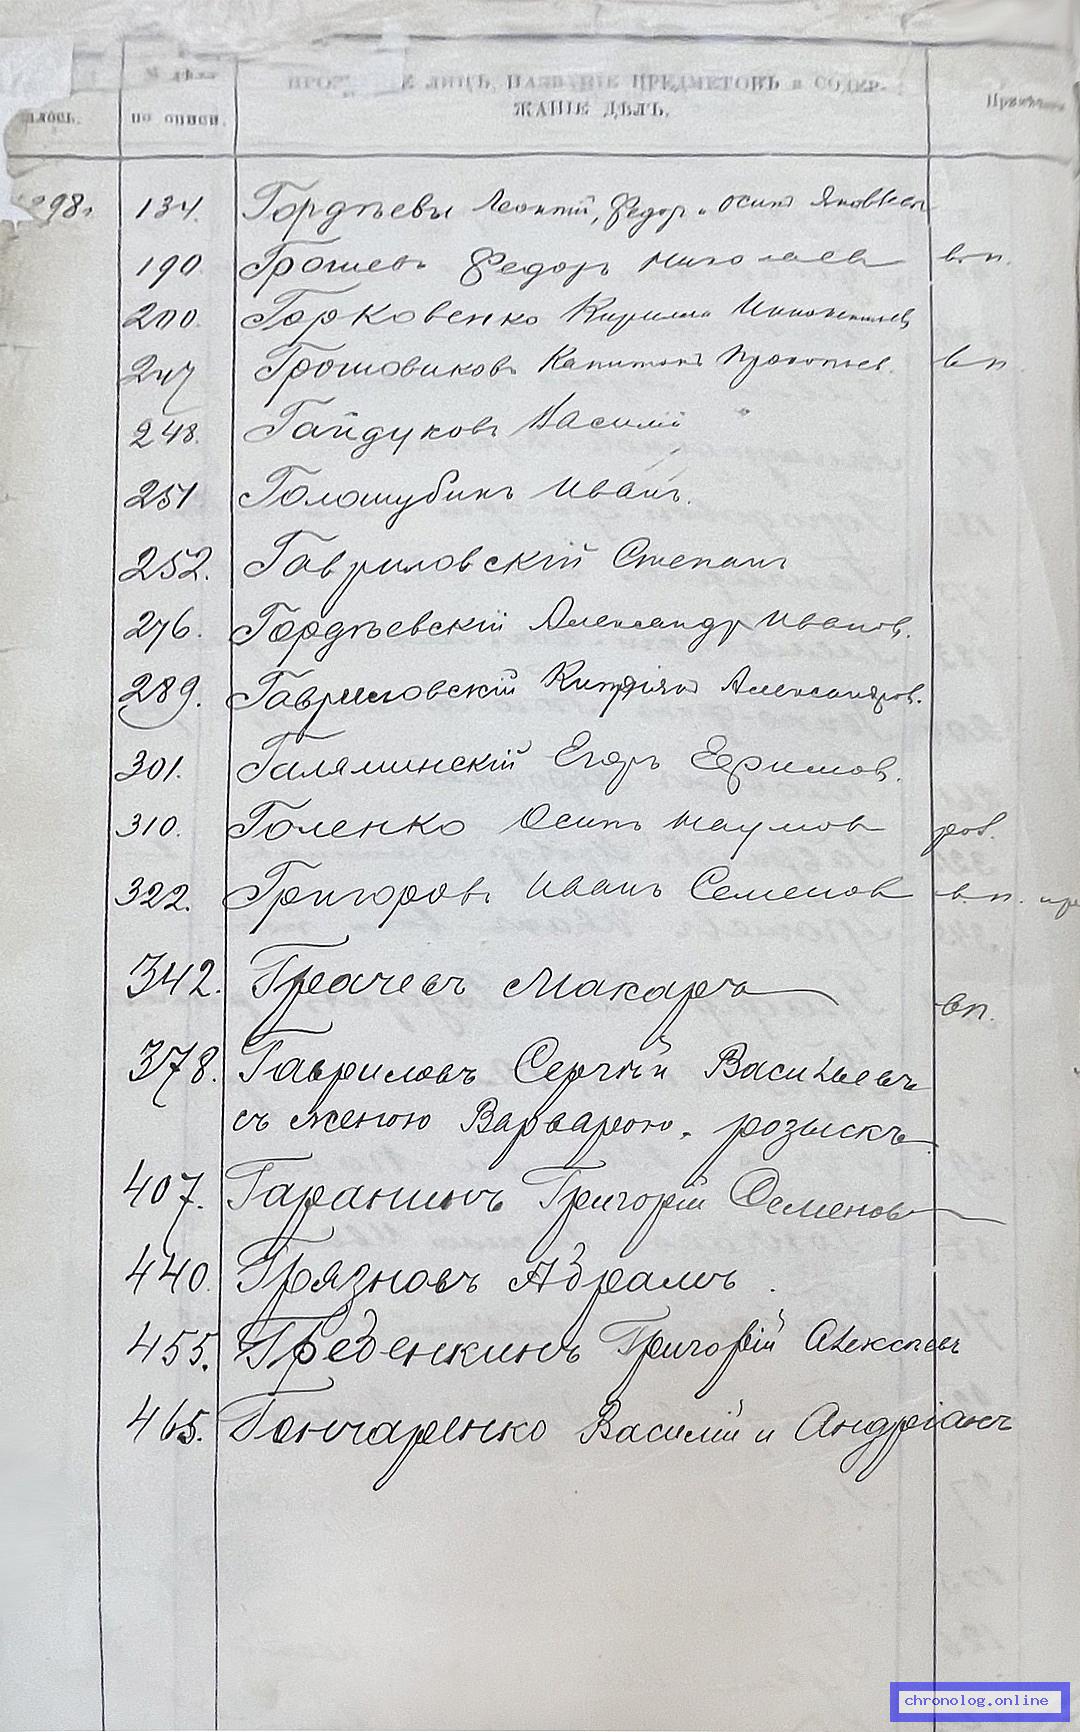 № дѣла ЛИЦЪ, НАЗВАНІЕ ПРЕДМЕТОВЪ и СОДЕР-
по описи. ЖАНІЕ ДѢЛЪ.
298. 134. Гордѣевы Леонтій, Федор и Осипъ Яковлев
190. Грошевъ Федоръ Николаев в. п.
200. Горковенко Кирилл
247 Грошовиковъ Капитонъ Прокопьев. в п
248. Гайдуковъ Василій
251 Голошубинъ Иванъ.
252. Гавриловскій Степанъ
276. Гордѣевскій Александръ Иванов.
289. Гавриловскій Кипріянъ Александров.
301. Галяминскій Егоръ Ефимов.
310. Голенко Осипъ Наумов роз.
322. Григоровъ Иванъ Семенов в. п.
342. Грачевъ Макаръ вп.
378. Гавриловъ Сергѣй Васильевъ
съ женою Варварою. розыскъ
407. Гаранинъ Григорій Семеновъ
440. Грязновъ Абрамъ.
455. Гребенкинъ Григорій Алексѣевъ
465. Гончаренко Василій и Андріанъ
chronolog.online